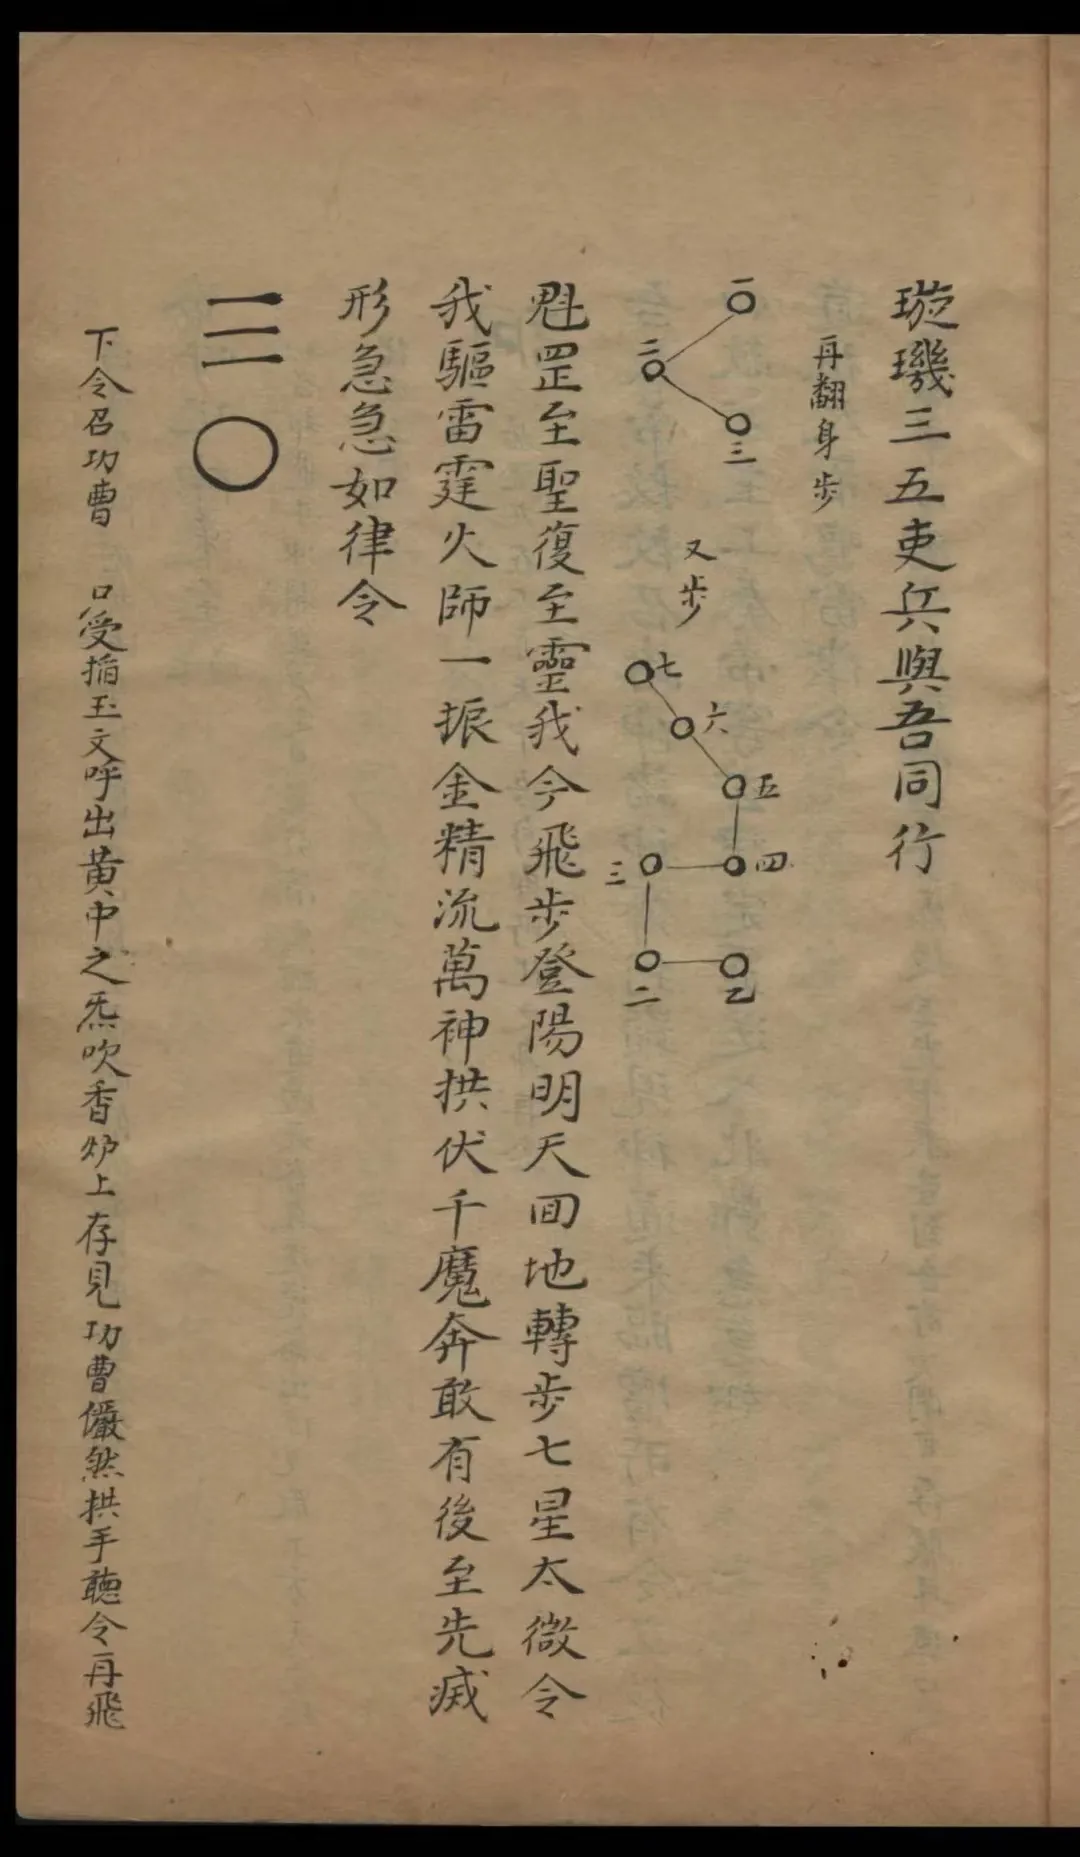 璇璣三五吏兵與吾同行
再翻身步
一
二
三
又步
七
六
五
四
三
二
乙
魁罡至聖復至靈我今飛步登陽明天回地轉步七星太微令
我驅雷霆火師一振金精流萬神拱伏千魔奔敢有後至先滅
形急急如律令
二一〇
下令召功曹 口受指玉文呼出黄中之炁吹香炉上存見功曹儼然拱手聽令再飛